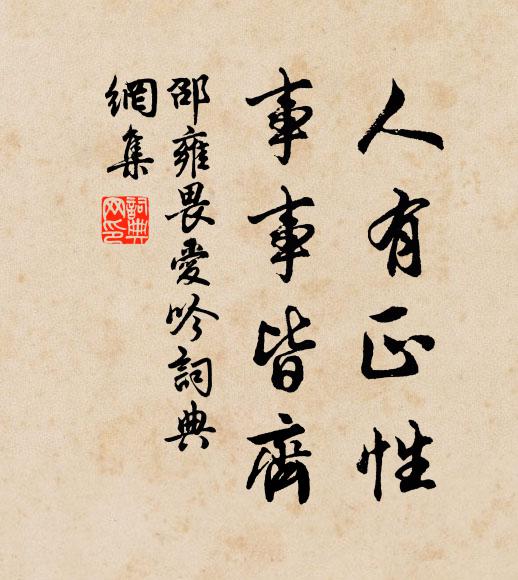 人有正性
事事皆齊
邵雍畏愛吟詞典
網集
詞典
网印